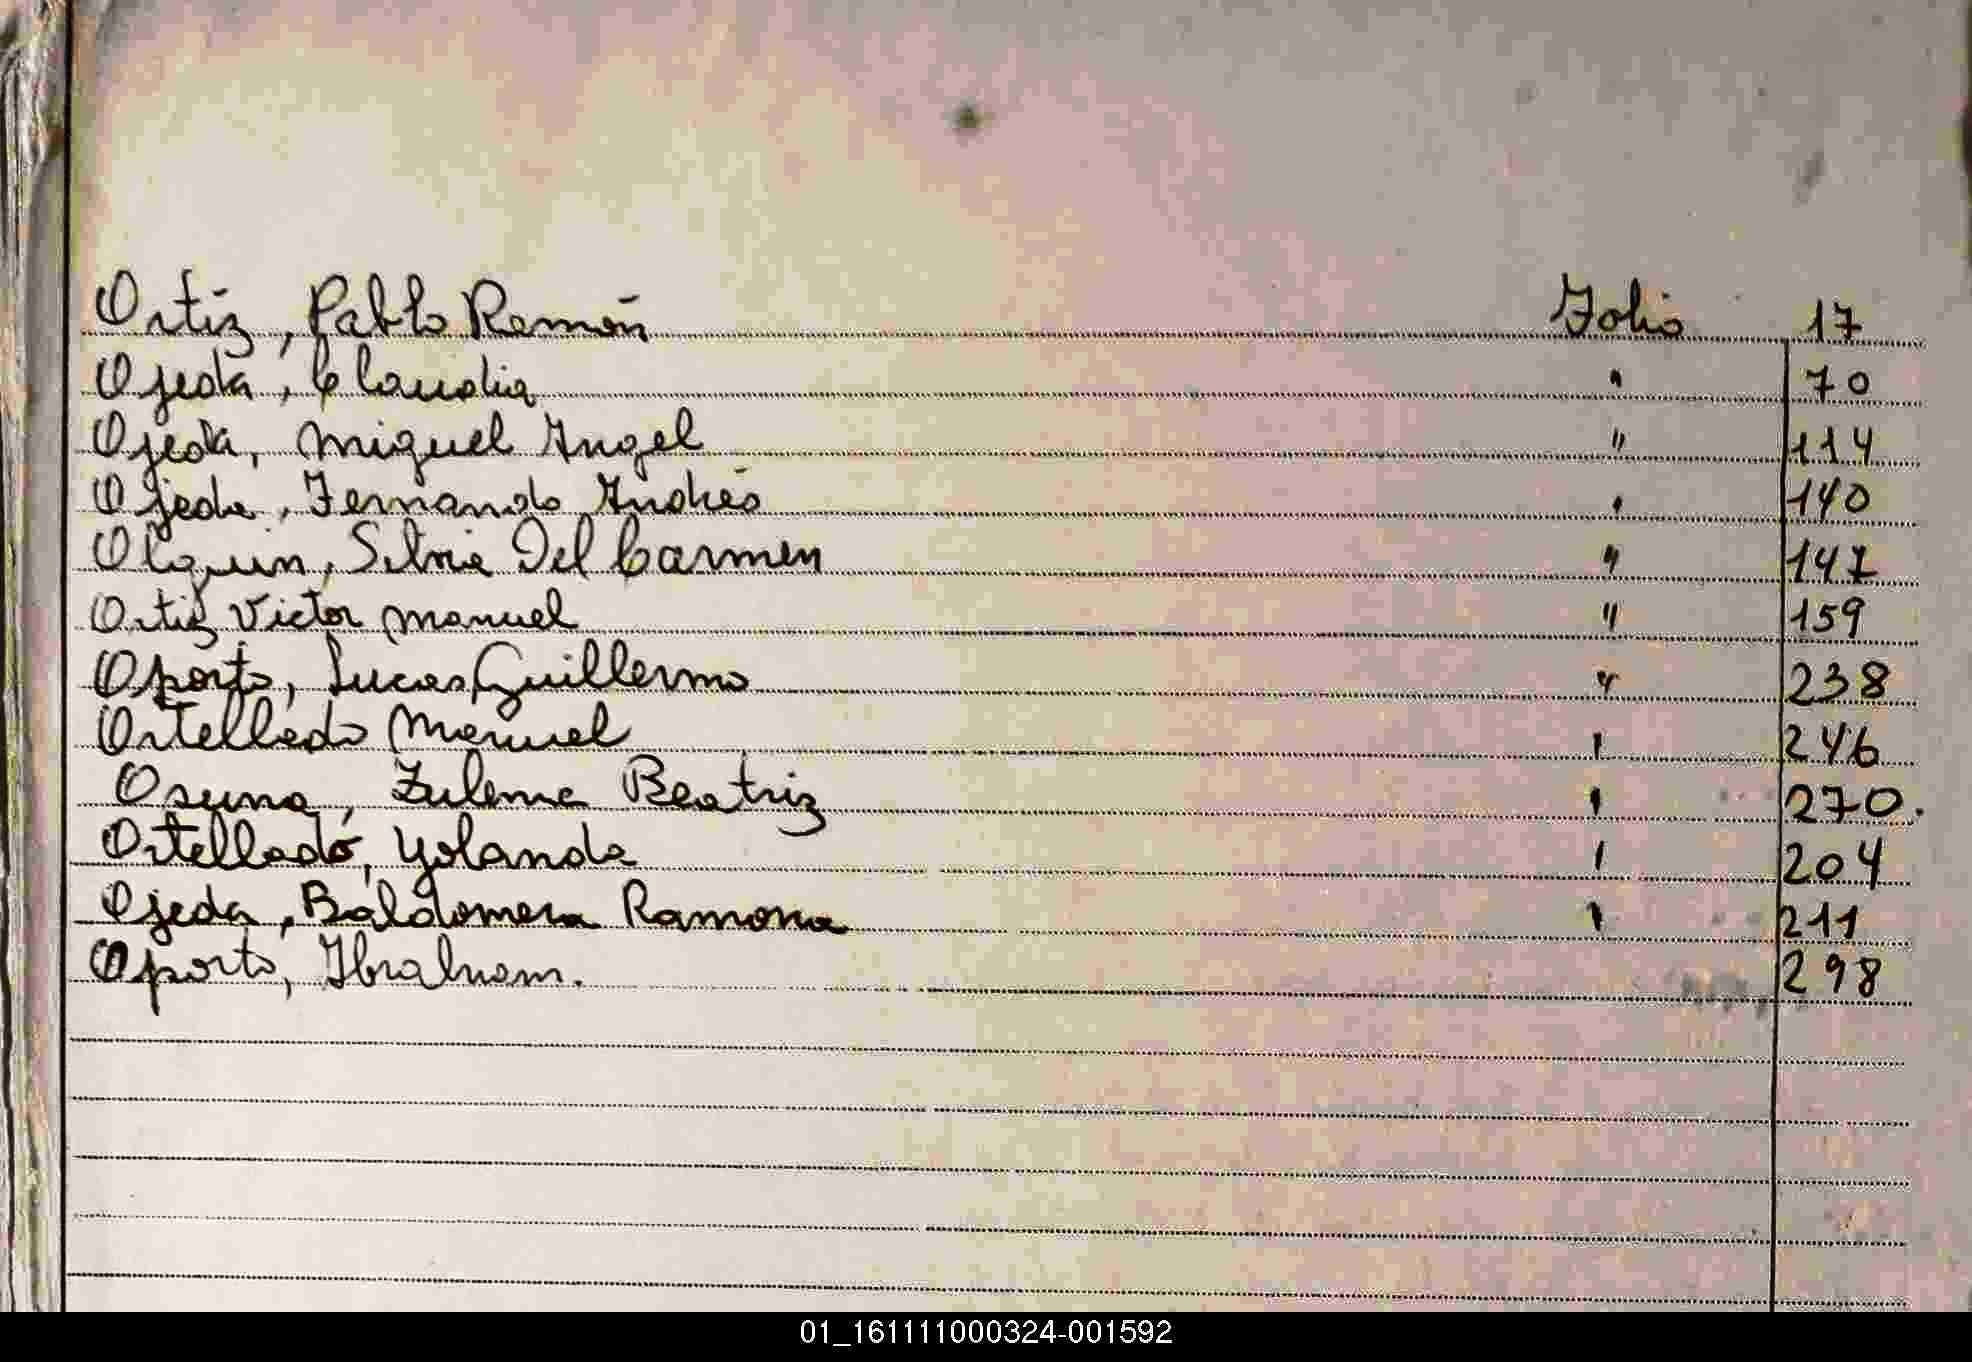 Ortiz, Pablo Ramón Folio 17
Ojeda, Claudia " 70
Ojeda, Miguel Angel " 114
Ojeda, Fernando Andrés " 140
Olguin, Silvia Del Carmen " 147
Ortiz Victor Manuel " 159
Oporto, Lucas Guillermo " 238
Ortellado Manuel " 246
Osuna, Zulema Beatriz " 270.
Ortelladó, Yolanda " 204
Ojeda, Baldomera Ramona " 211
Oporto, Ibrahaom. 298
01_161111000324-001592